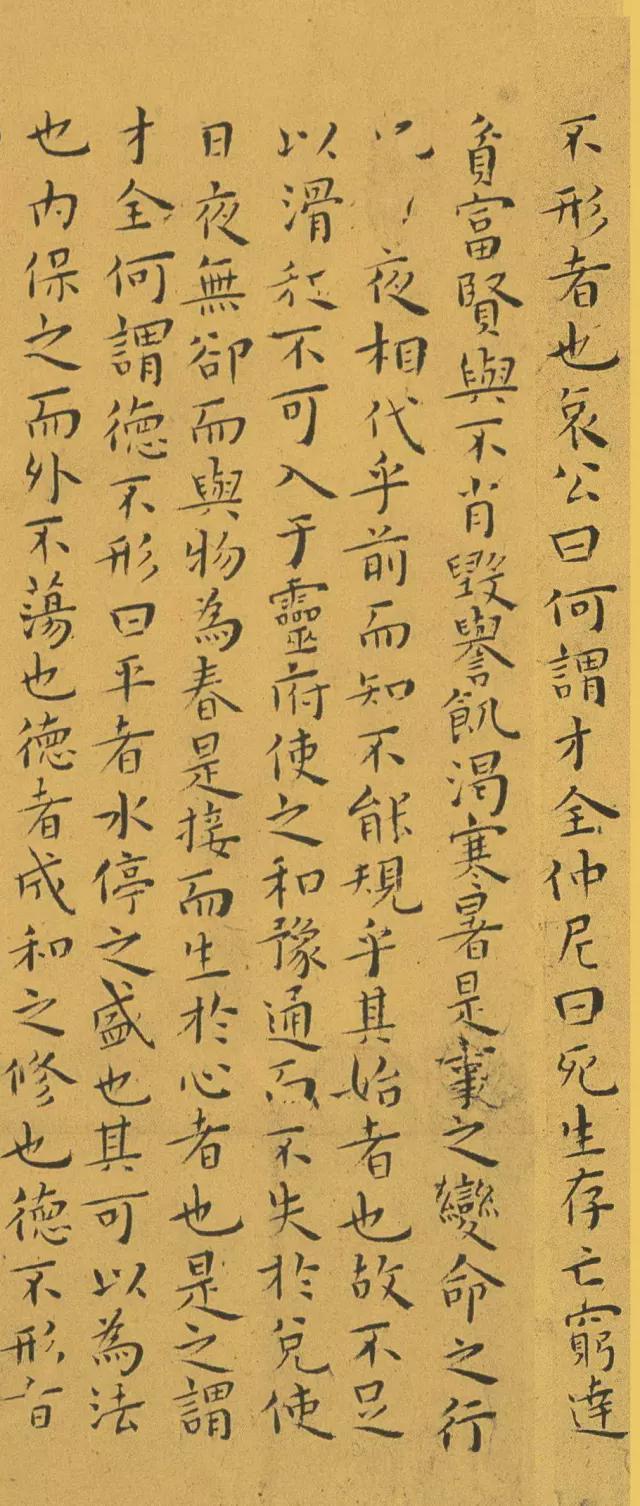 不形者也哀公曰何謂才全仲尼曰死生存亡窮達
貧富賢與不肖毀譽飢渴寒暑是事之變命之行
夜相代乎前而知不能規乎其始者也故不足
以滑和不可入于靈府使之和豫通而不失於兌使
日夜無卻而與物為春是接而生於心者也是之謂
才全何謂德不形曰平者水停之盛也其可以為法
也內保之而外不蕩也德者成和之修也德不形者